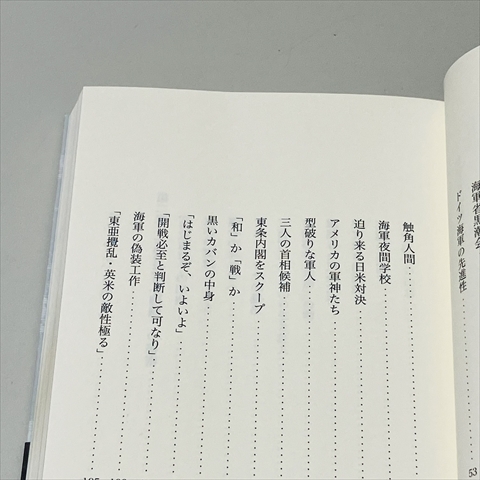 海軍省黒潮会
ドイツ海軍の先進性
53
触角人間
海軍夜間学校
迫り来る日米対決
アメリカの軍神たち
型破りな軍人
三人の首相候補
東条内閣をスクープ
「和」か「戦」か
黒いカバンの中身
「はじまるぞ、いよいよ」
「開戦必至と判断して可なり」
海軍の偽装工作
「東亜攪乱・英米の敵性極る」